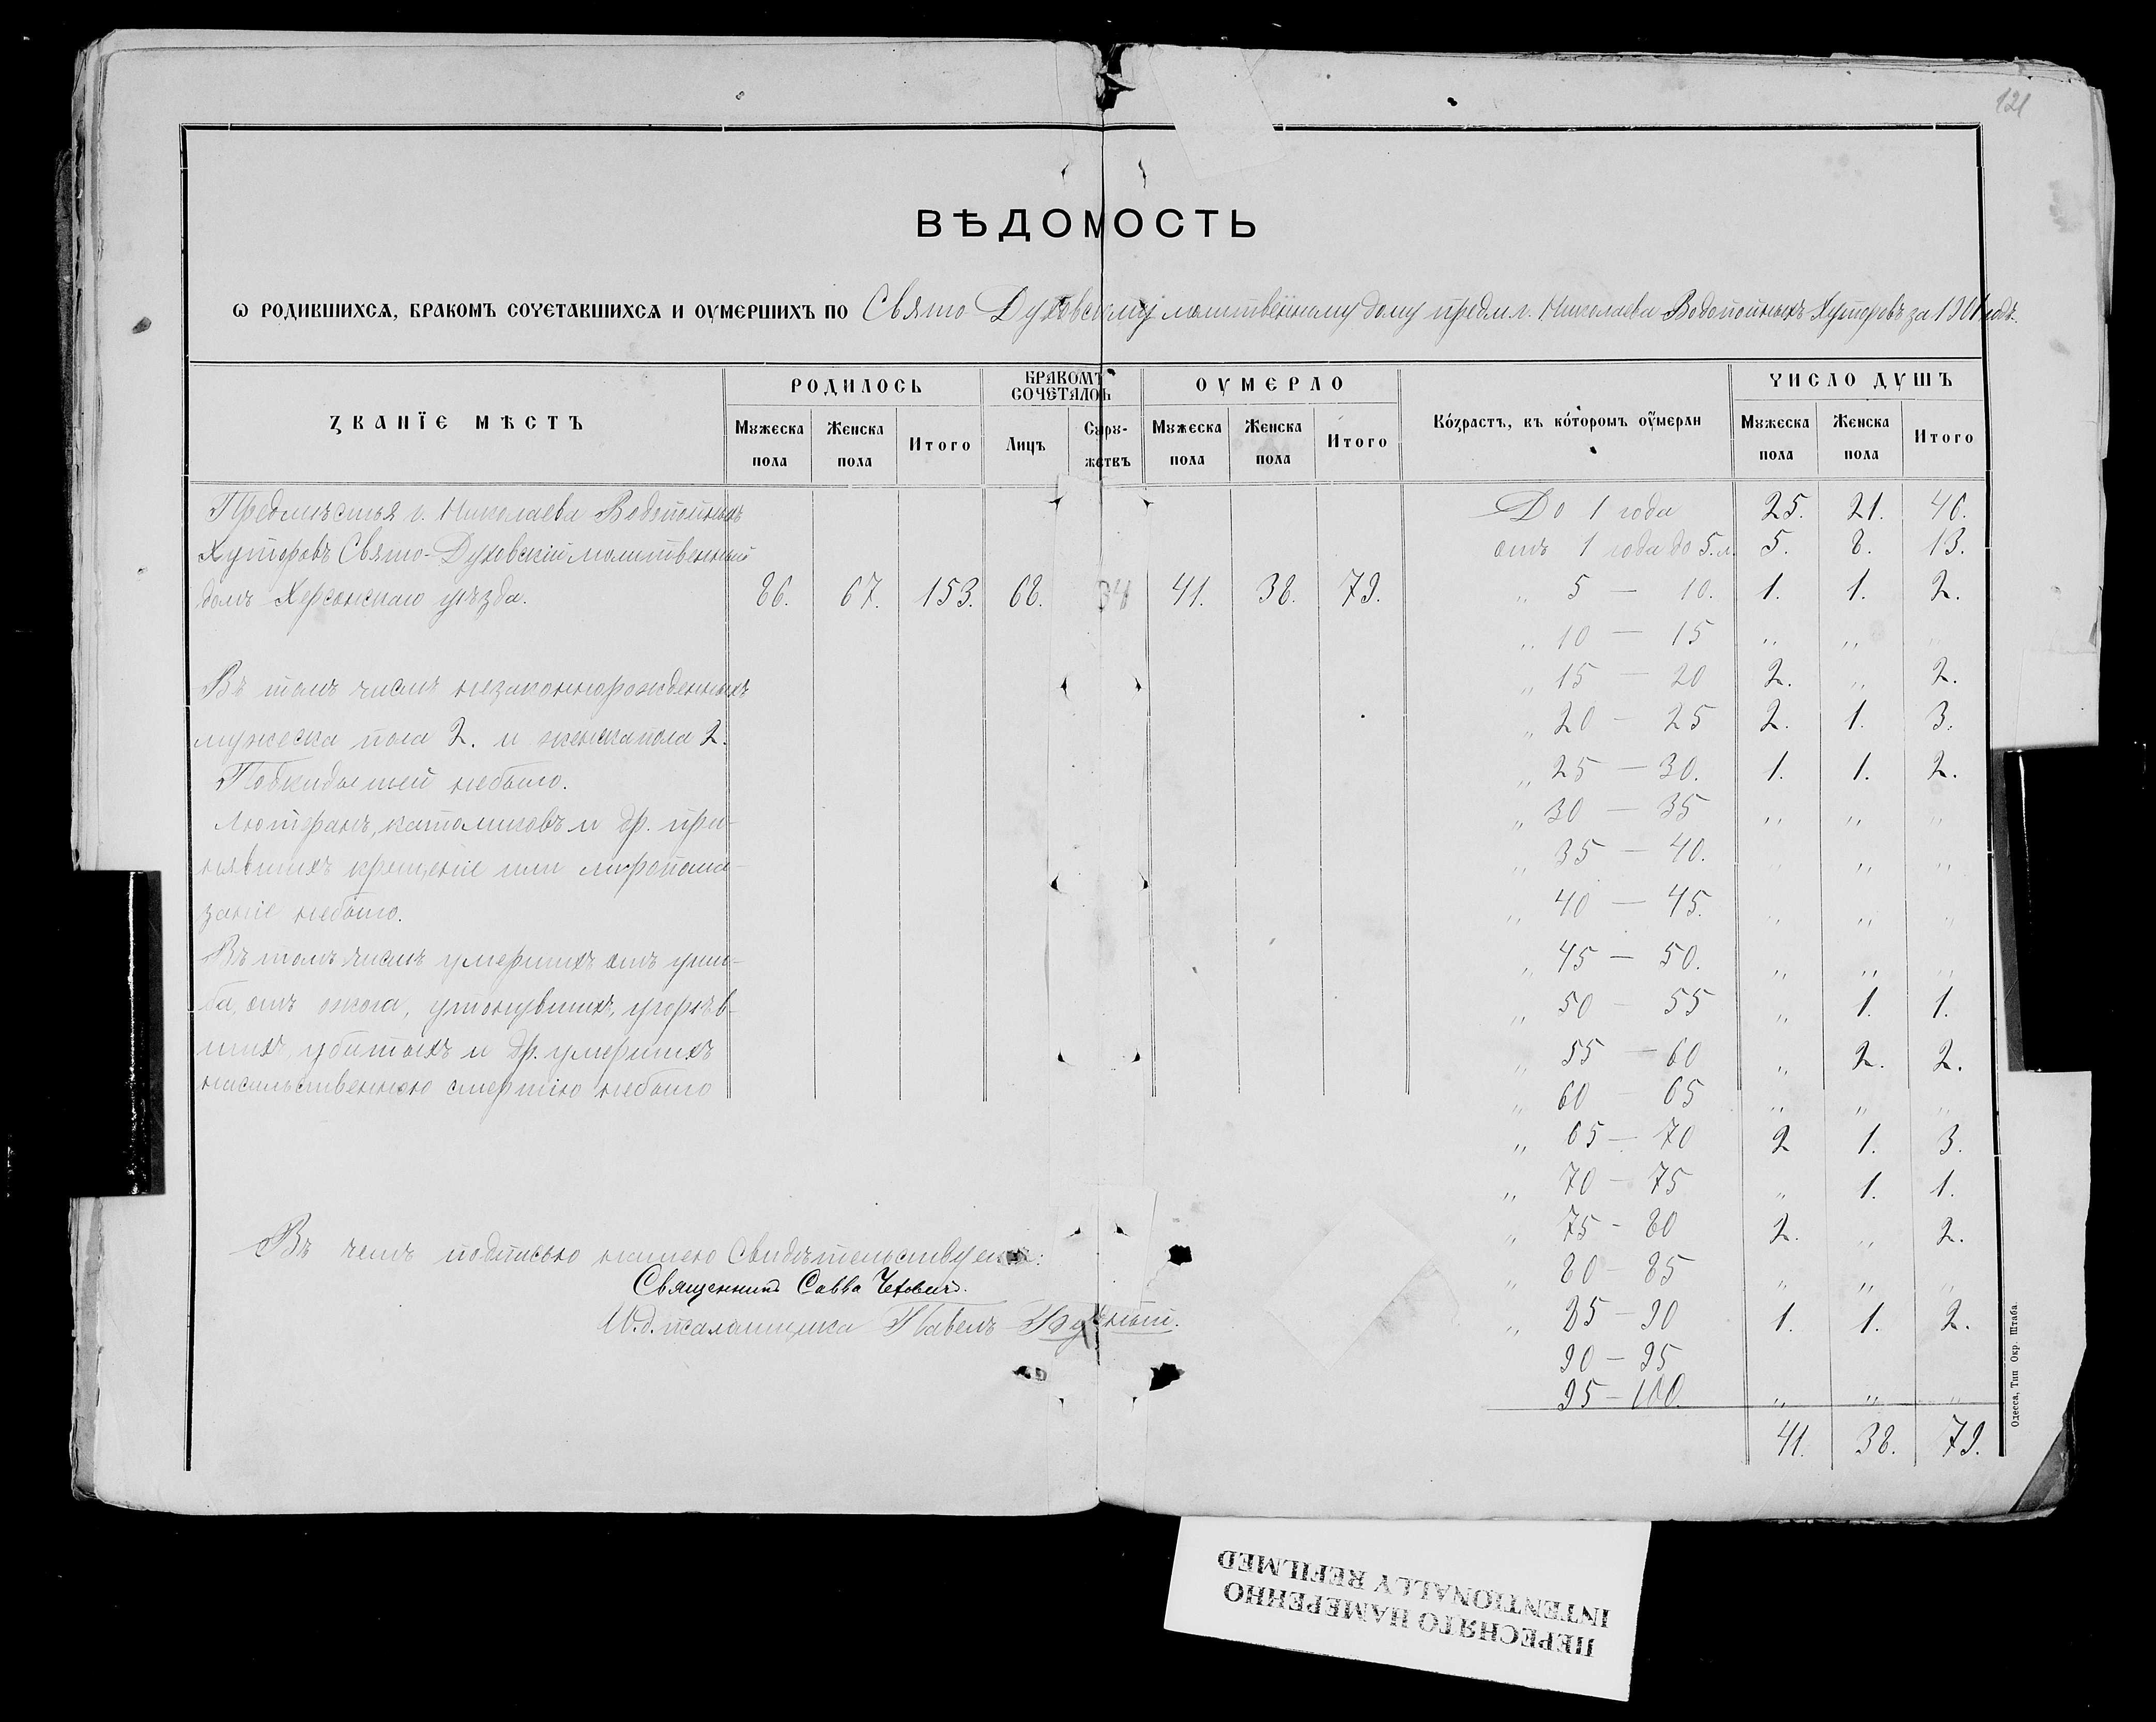 121
ВѢДОМОСТЬ
Ѡ РОДИВШИХСѦ, БРАКОМЪ СОЧЕТАВШИХСѦ И ОУМЕРШИХЪ ПО Свято Духовскому молитвенному дому предм. г. Николаева Водопойныхъ Хуторовъ за 1901 годъ.
ЗВАНЇЕ МѢСТЪ
РОДИЛОСЬ
БРАКОМЪ СОЧЕТАЛОСЬ
ОУМЕРЛО
Во́зрастъ, въ ко́торомъ оу҆мерли
ЧИСЛО ДУШЪ
Мужеска пола
Женска пола
Итого
Лицъ
Супружествъ
Мужеска пола
Женска пола
Итого
Мужеска пола
Женска пола
Итого
Предмѣстья г. Николаева Водопойныхъ
Хуторовъ Свято-Духовскій молитвенный
домъ Херсонскаго уѣзда.
86. 67. 153. 68. 34 41. 38. 79.
Въ томъ числѣ незаконнорожденныхъ
мужеска пола 2. и женска пола 2.
Подкидышей небыло.
Лютеранъ, католиковъ и др. при-
нявшихъ крещеніе или миропома-
заніе небыло.
Въ томъ числѣ умершихъ отъ уши-
ба, отъ ожога, утонувшихъ, угорѣв-
шихъ, убитыхъ и др. умершихъ
насильственною смертію небыло
До 1 года 25. 21. 46.
отъ 1 года до 5. л. 5. 8. 13.
„ 5 — 10. 1. 1. 2.
„ 10 — 15 „ „ „
„ 15 — 20 2. „ 2.
„ 20 — 25 2. 1. 3.
„ 25 — 30. 1. 1. 2.
„ 30 — 35 „ „ „
„ 35 — 40. „ „ „
„ 40 — 45. „ „ „
„ 45 — 50. „ „ „
„ 50 — 55 „ 1. 1.
„ 55 — 60 „ 2. 2.
„ 60 — 65 „ „ „
„ 65 — 70 2 1. 3.
„ 70 — 75 „ 1. 1.
„ 75 — 80 2. „ 2.
„ 80 — 85 „ „ „
„ 85 — 90 1. 1. 2.
90 — 95
95 — 100. „ „ „
41. 38. 79.
Въ чемъ подписью нашею свидѣтельствуемъ:
Священникъ Савва
И. д. псаломщика Павелъ
Одесса, Тип. Окр. Штаба.
ПЕРЕСНЯТО НАМЕРЕННО
INTENTIONALLY REFILMED